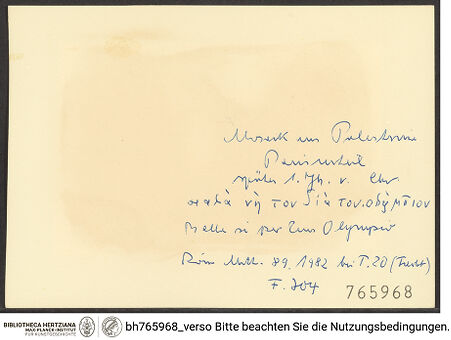 Mosaik aus Palestrina
Parisurteil
spätes 1. Jh. v. Chr.
καλὰ νὴ τον Δία τον ολύμπιον
Bella si per Zeus Olympio
Röm. Mitt. 89, 1982 bei T. 20 (Txt)
F. 204
765968
BIBLIOTHECA HERTZIANA
MAX-PLANCK-INSTITUT
FÜR KUNSTGESCHICHTE
bh765968_verso Bitte beachten Sie die Nutzungsbedingungen.